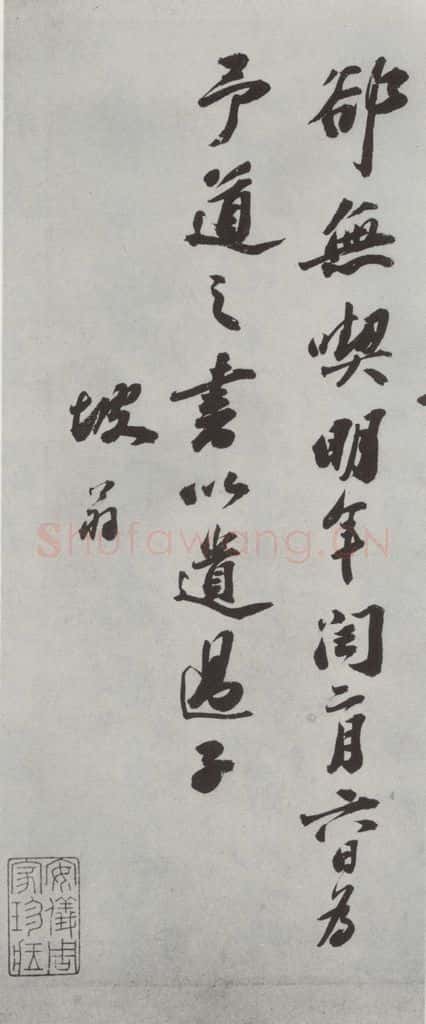 卻無喫明年閏二月六日為
予道之書以遺過子
坡翁
安儀周
家珍藏
Shufawang.CN